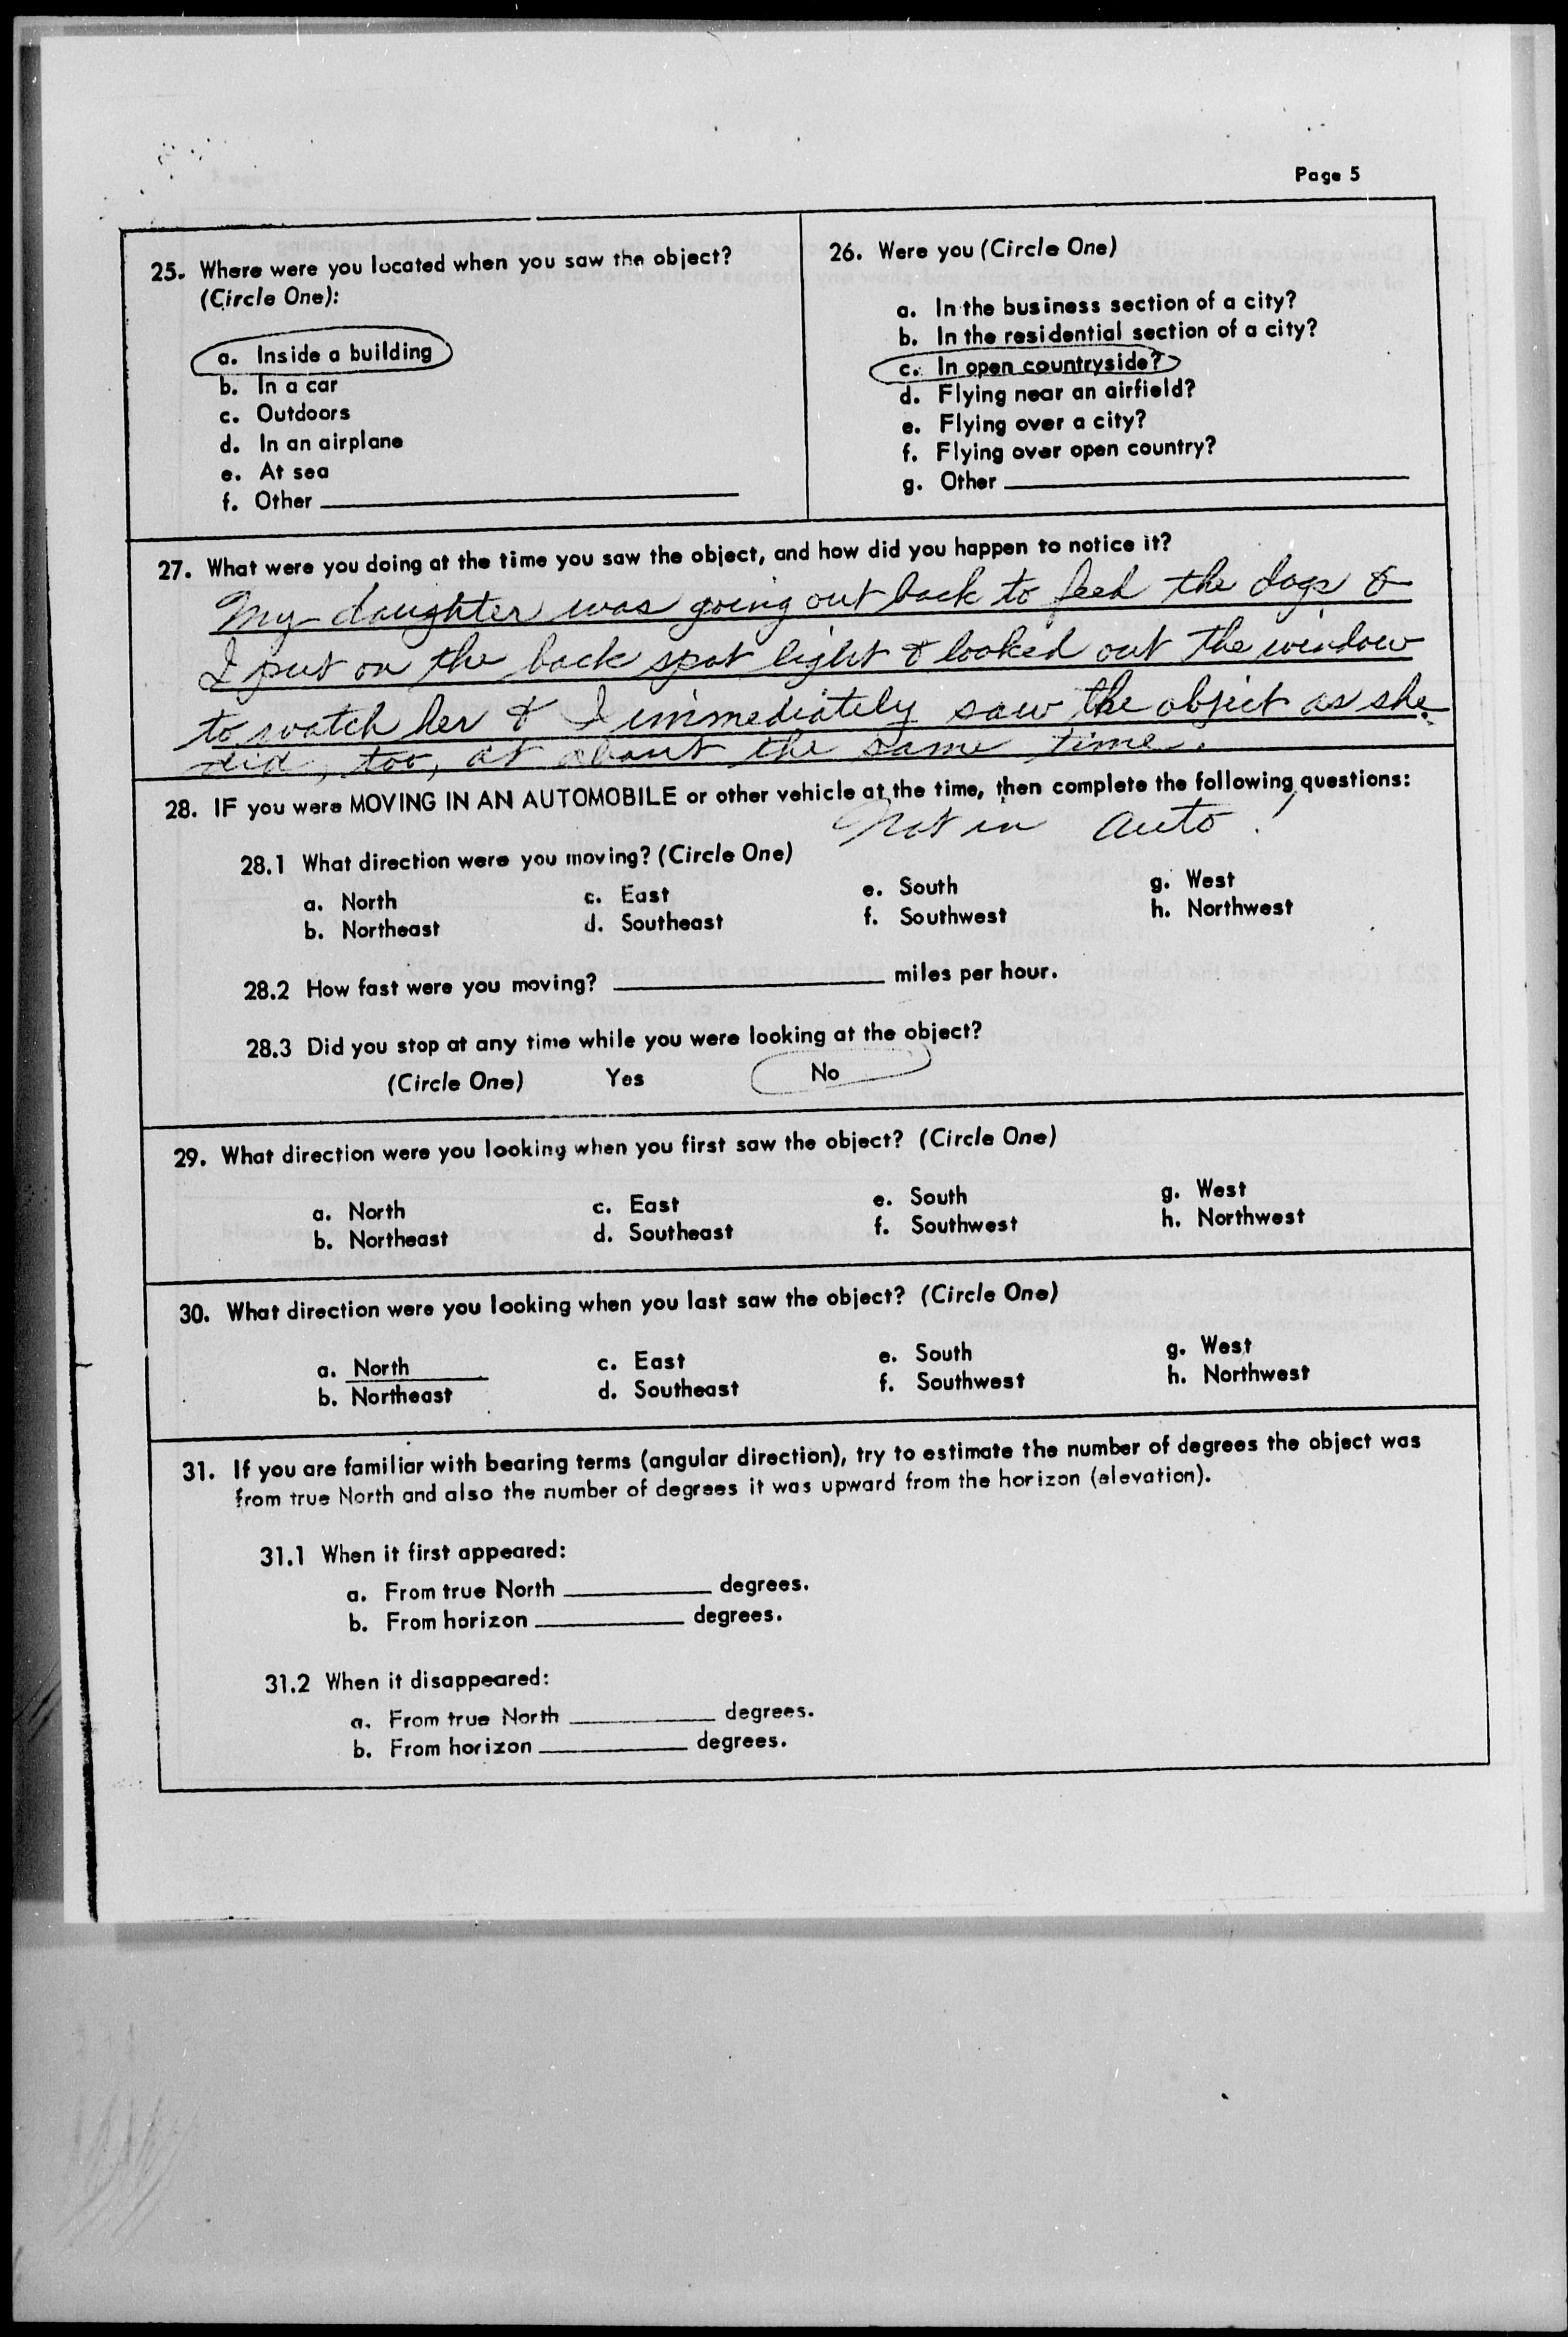 Page 5
25. Where were you located when you saw the object?
(Circle One):
a. Inside a building
b. In a car
c. Outdoors
d. In an airplane
e. At sea
f. Other
26. Were you (Circle One)
a. In the business section of a city?
b. In the residential section of a city?
c. In open countryside?
d. Flying near an airfield?
e. Flying over a city?
f. Flying over open country?
g. Other
27. What were you doing at the time you saw the object, and how did you happen to notice it?
My daughter was going out back to feed the dogs &
I put on the back spot light & looked out the window
to watch her & I immediately saw the object as she
did, too, at about the same time.
28. IF you were MOVING IN AN AUTOMOBILE or other vehicle at the time, then complete the following questions:
Not in auto!
28.1 What direction were you moving? (Circle One)
a. North c. East e. South g. West
b. Northeast d. Southeast f. Southwest h. Northwest
28.2 How fast were you moving? miles per hour.
28.3 Did you stop at any time while you were looking at the object?
(Circle One) Yes No
29. What direction were you looking when you first saw the object? (Circle One)
a. North c. East e. South g. West
b. Northeast d. Southeast f. Southwest h. Northwest
30. What direction were you looking when you last saw the object? (Circle One)
a. North c. East e. South g. West
b. Northeast d. Southeast f. Southwest h. Northwest
31. If you are familiar with bearing terms (angular direction), try to estimate the number of degrees the object was
from true North and also the number of degrees it was upward from the horizon (elevation).
31.1 When it first appeared:
a. From true North degrees.
b. From horizon degrees.
31.2 When it disappeared:
a. From true North degrees.
b. From horizon degrees.